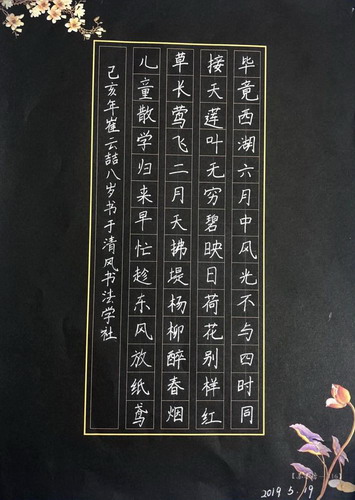 毕竟西湖六月中风光不与四时同
接天莲叶无穷碧映日荷花别样红
草长莺飞二月天拂堤杨柳醉春烟
儿童散学归来早忙趁东风放纸鸢
己亥年崔云喆八岁书于清风书法学社
2019 5.19